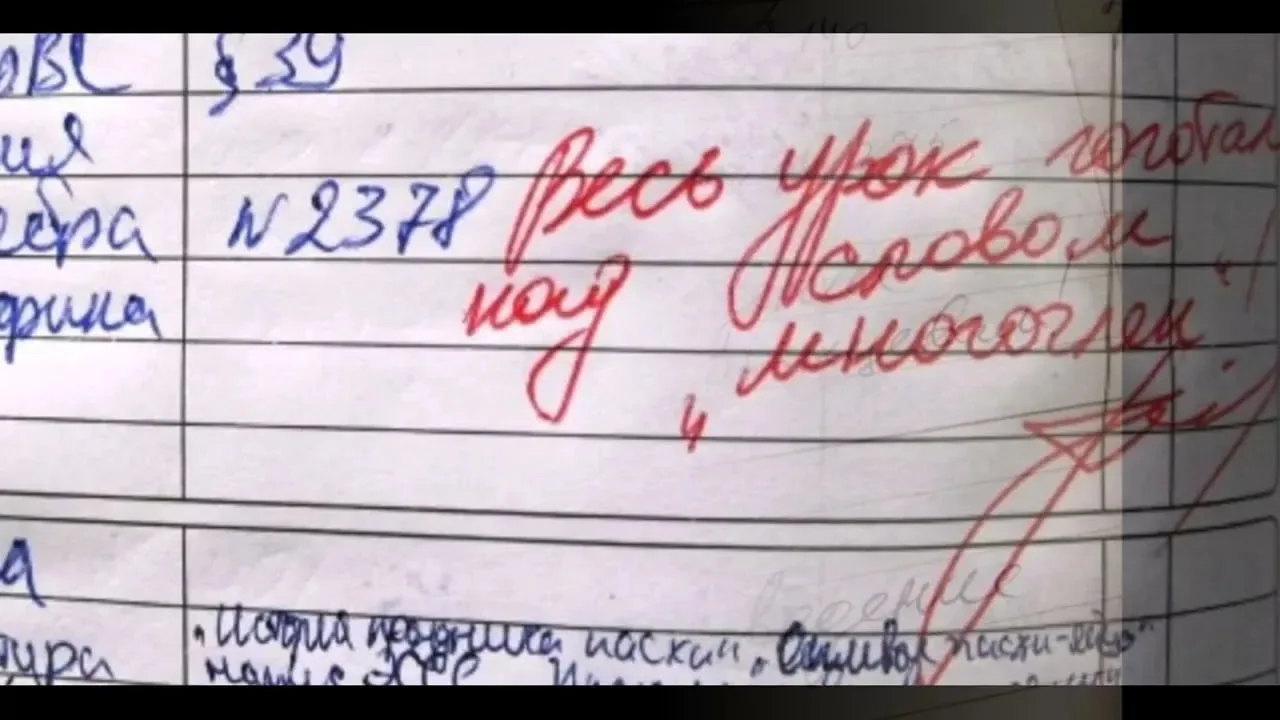 § 39
ия
N 2378
Весь урок гоготал
над словом
„многочлен“
а
тура
„История праздника пасхи“ „Символ пасхи-яйцо“